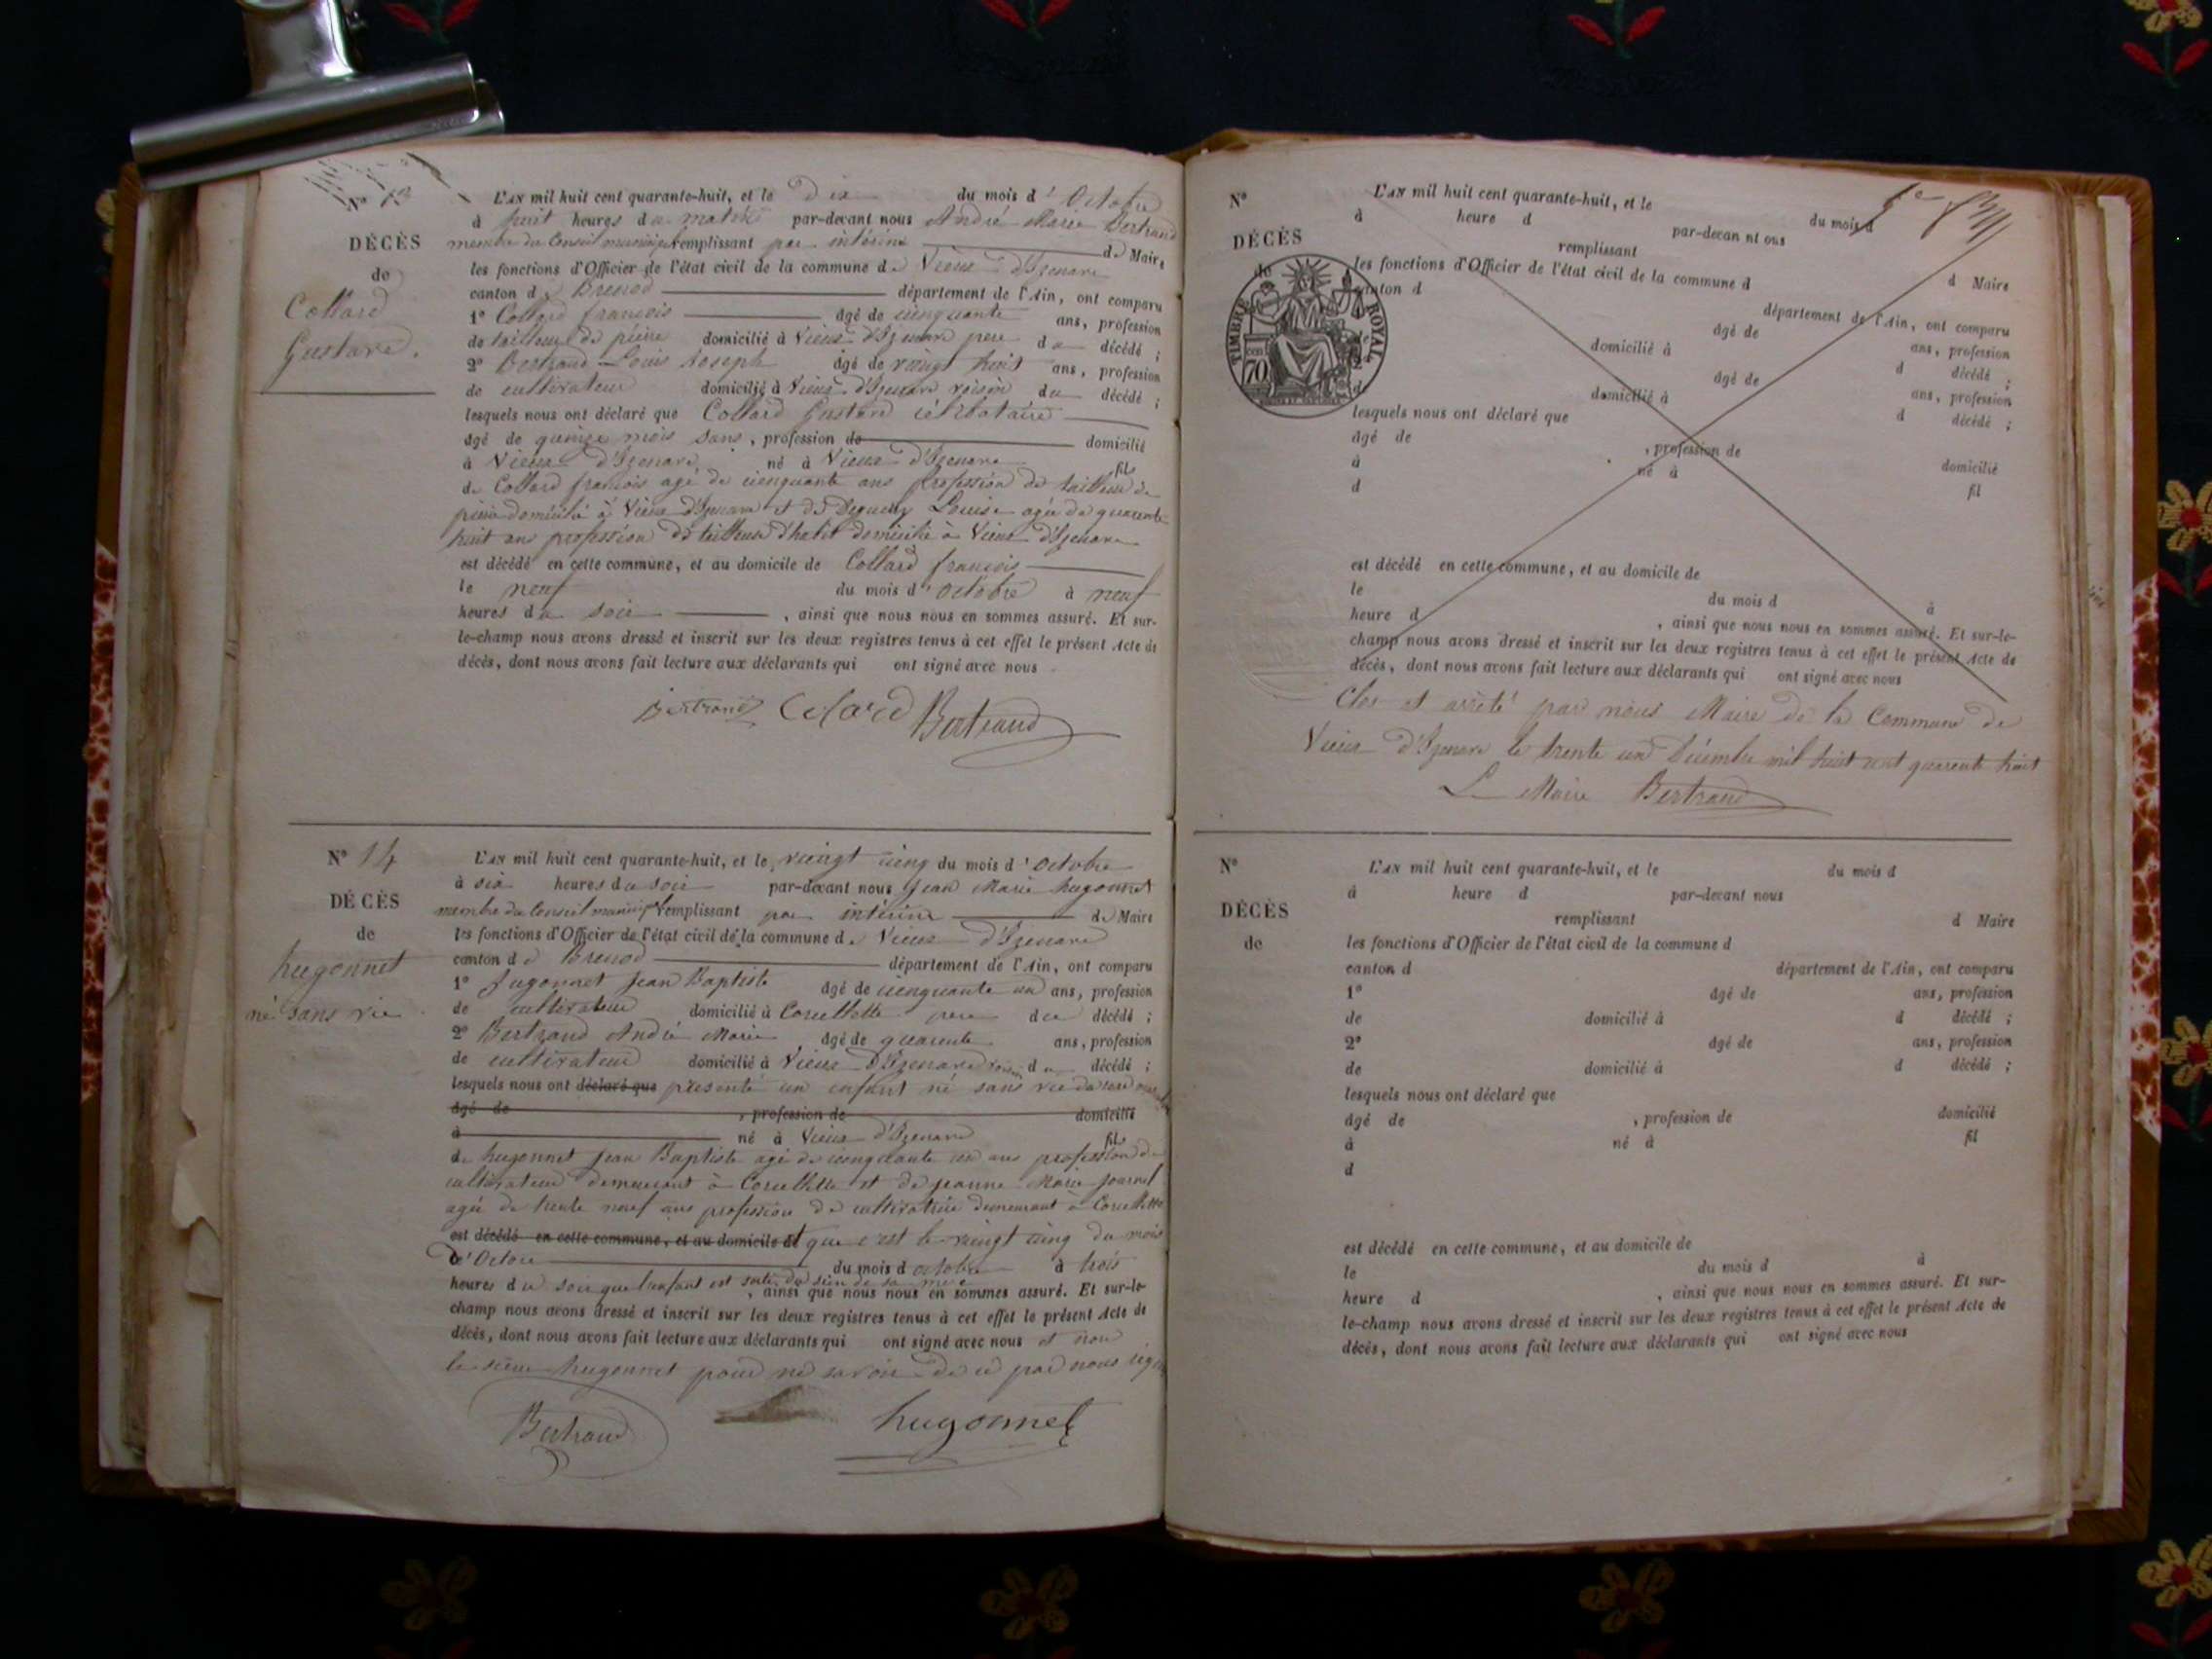 N° 13
DÉCÈS
de
Collard
Gustave.
L'AN mil huit cent quarante-huit, et le dix du mois d'Octobre
à huit heures du matin par-devant nous André Marie Bertrand
membre du Conseil municipal remplissant par intérim de Maire
les fonctions d'Officier de l'état civil de la commune de Vieux d'Izenave
canton de Brenod département de l'Ain, ont comparu
1° Collard françois âgé de cinquante ans, profession
de tailleur de pierre domicilié à Vieux d'Izenave pere du décédé ;
2° Bertrand Louis Joseph âgé de vingt huit ans, profession
de cultivateur domicilié à Vieux d'Izenave voisin du décédé ;
lesquels nous ont déclaré que Collard Gustave célibataire
âgé de quinze mois sans, profession de domicilié
à Vieux d'Izenave né à Vieux d'Izenave fils
de Collard françois agé de cinquante ans profession de tailleur de
pierre domicilié à Vieux d'Izenave et de Louise agée de quarante
huit ans profession de tailleuse d'habit domicilié à Vieux d'Izenave
est décédé en cette commune, et au domicile de Collard françois
le neuf du mois d'octobre à neuf
heures du soir , ainsi que nous nous en sommes assuré. Et sur-
le-champ nous avons dressé et inscrit sur les deux registres tenus à cet effet le présent Acte de
décès, dont nous avons fait lecture aux déclarants qui ont signé avec nous
Bertrand Colard Bertrand
N° 14
DÉCÈS
de
hugonnet
né sans vie
L'AN mil huit cent quarante-huit, et le vingt cinq du mois d'Octobre
à six heures du soir par-devant nous Jean Marie hugonnet
membre du Conseil municipal remplissant par intérim de Maire
les fonctions d'Officier de l'état civil de la commune de Vieux d'Izenave
canton de Brenod département de l'Ain, ont comparu
1° hugonnet Jean Baptiste âgé de cinquante un ans, profession
de cultivateur domicilié à Corcellette pere du décédé ;
2° Bertrand André Marie âgé de quarante ans, profession
de cultivateur domicilié à Vieux d'Izenave voisin du décédé ;
lesquels nous ont déclaré que présenté un enfant né sans vie du sexe
âgé de , profession de domicilié
à né à Vieux d'Izenave fils
de hugonnet Jean Baptiste agé de cinquante un ans profession de
cultivateur demeurant à Corcellette et de jeanne Marie journel
agée de trente neuf ans profession de cultivatrice demeurant à Corcellette
est décédé en cette commune, et au domicile de que c'est le vingt cinq du mois
d'Octore du mois d octobre à trois
heures du soir que l'enfant est sorti du sein de sa mere , ainsi que nous nous en sommes assuré. Et sur-le-
champ nous avons dressé et inscrit sur les deux registres tenus à cet effet le présent Acte de
décès, dont nous avons fait lecture aux déclarants qui ont signé avec nous et non
le sieur hugonnet pour ne savoir de ce par nous
Bertrand hugonnet
N°
DÉCÈS
de
TIMBRE ROYAL
70
L'AN mil huit cent quarante-huit, et le du mois d
à heure d par-devan nt ous
remplissant d Maire
les fonctions d'Officier de l'état civil de la commune d
canton d département de l'Ain, ont comparu
âgé de ans, profession
domicilié à d décédé ;
âgé de ans, profession
domicilié à d décédé ;
lesquels nous ont déclaré que
âgé de , profession de domicilié
à né à fil
d
est décédé en cette commune, et au domicile de
le du mois d à
heure d , ainsi que nous nous en sommes assuré. Et sur-le-
champ nous avons dressé et inscrit sur les deux registres tenus à cet effet le présent Acte de
décès, dont nous avons fait lecture aux déclarants qui ont signé avec nous
Clos et arrêté par nous Maire de la Commune de
Vieux d'Izenave le trente un Décembre mil huit cent quarante huit
Le Maire Bertrand
N°
DÉCÈS
de
L'AN mil huit cent quarante-huit, et le du mois d
à heure d par-devant nous
remplissant d Maire
les fonctions d'Officier de l'état civil de la commune d
canton d département de l'Ain, ont comparu
1° âgé de ans, profession
de domicilié à d décédé ;
2° âgé de ans, profession
de domicilié à d décédé ;
lesquels nous ont déclaré que
âgé de , profession de domicilié
à né à fil
d
est décédé en cette commune, et au domicile de
le du mois d à
heure d , ainsi que nous nous en sommes assuré. Et sur-
le-champ nous avons dressé et inscrit sur les deux registres tenus à cet effet le présent Acte de
décès, dont nous avons fait lecture aux déclarants qui ont signé avec nous